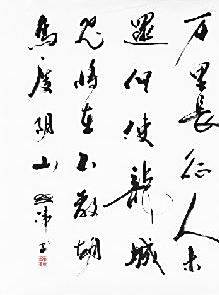 万里長征人未
還但使龍城
飛將在不教胡
馬度阴山